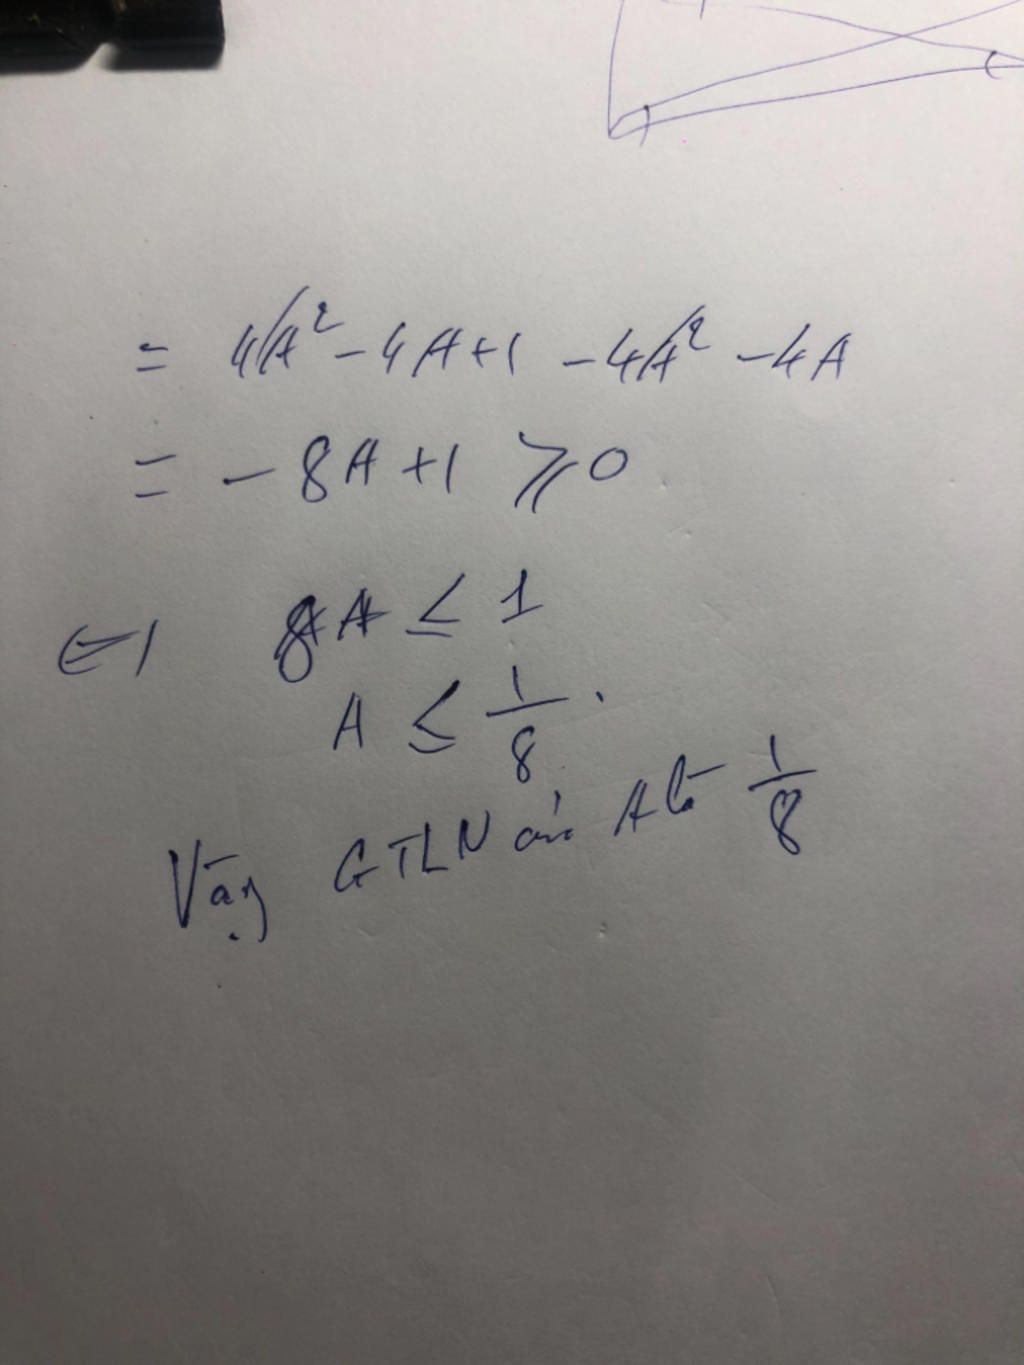 = 4A² - 4A + 1 - 4A² - 4A
= - 8A + 1 ⩾ 0
8A ≤ 1
A ≤ 1/8 .
Vậy GTLN của A là 1/8